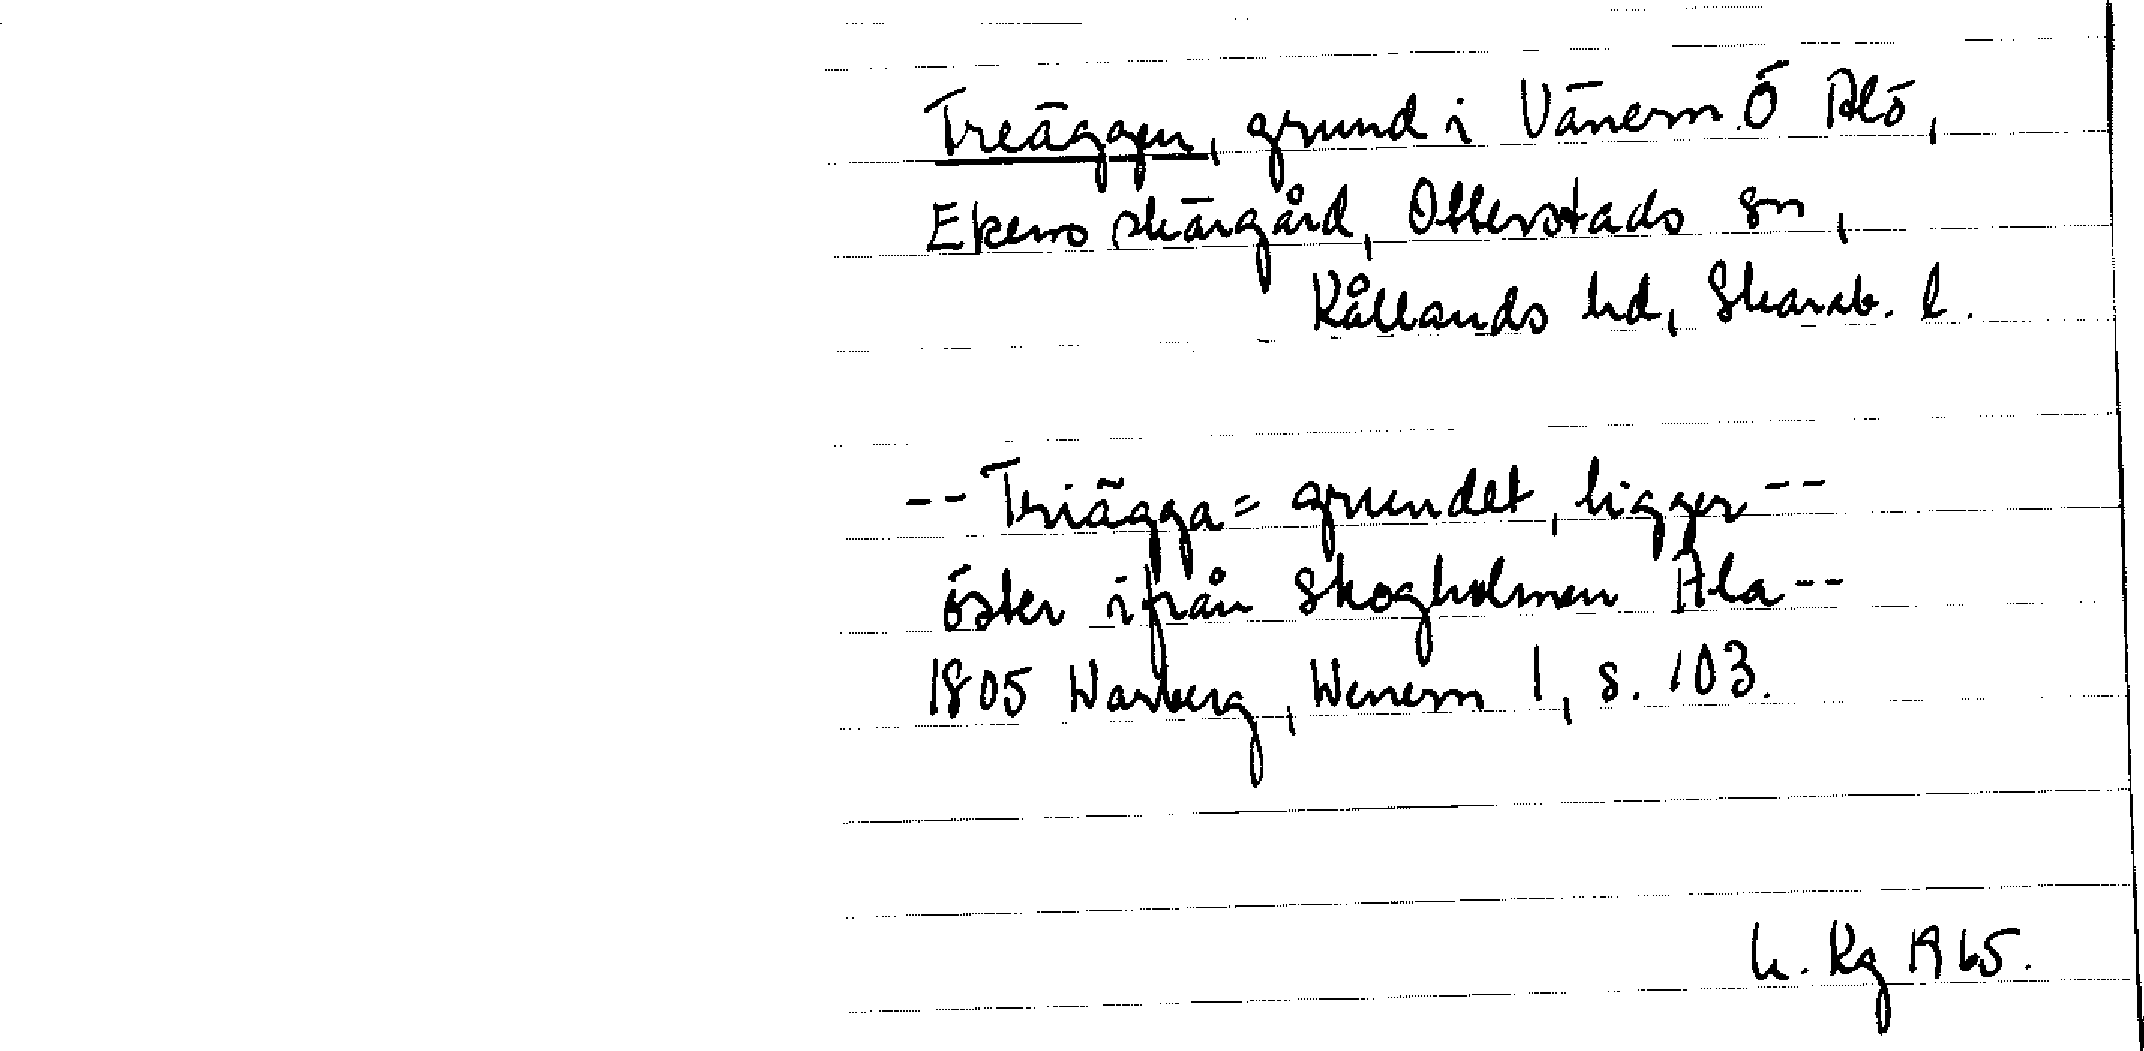 Treäggen, grund i Vänern Ö Alö,
Ekens skärgård, Otterstads sn,
Kållands hd, Skarab. l.
-- Triägga= grundet, ligger --
öster ifrån Skogholmen Ala --
1805 Warberg, Wenern 1, s. 103.
Kg 1965.